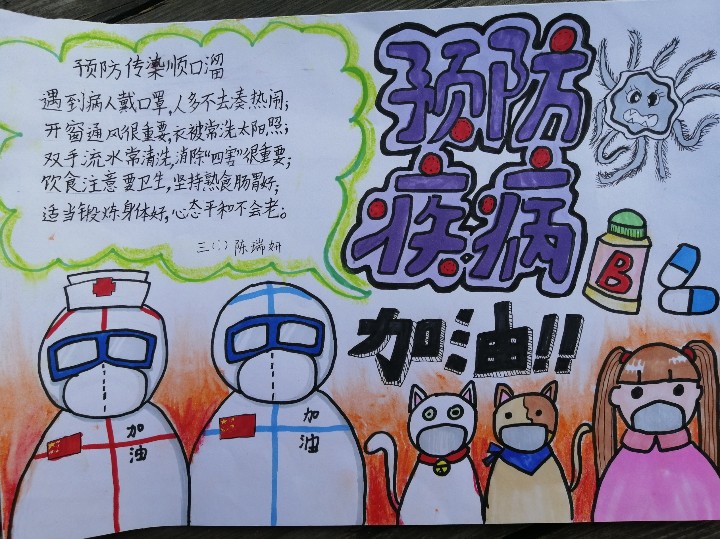 预防传染顺口溜
遇到病人戴口罩,人多不去凑热闹;
开窗通风很重要,衣被常洗太阳照;
双手流水常清洗,消除“四害”很重要;
饮食注意要卫生,坚持熟食肠胃好;
适当锻炼身体好,心态平和不会老。
三( )陈瑞妍
预防
疾病
加油!!
B
加油
加油